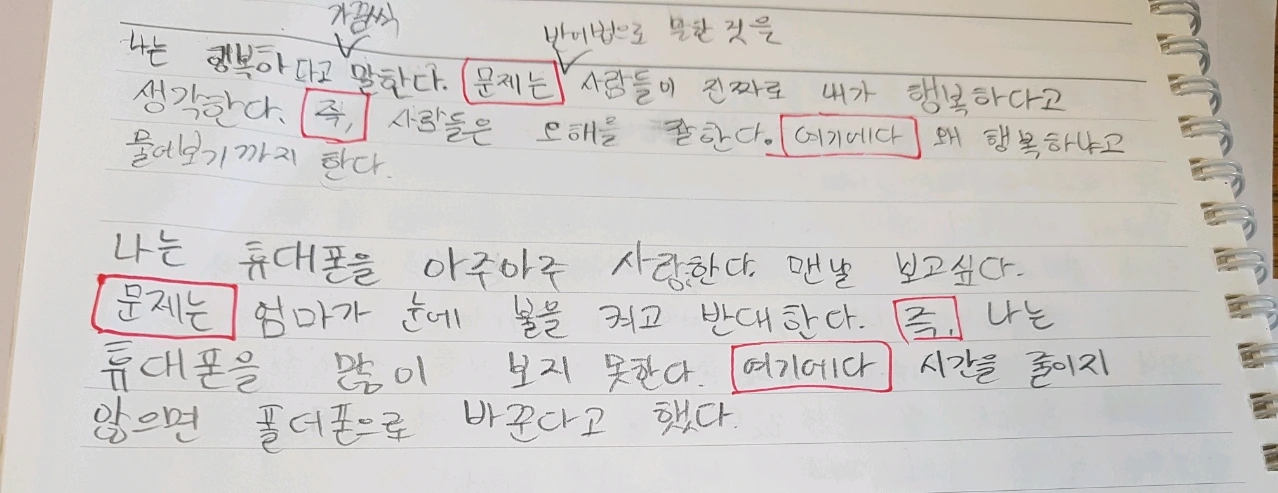 가끔씩
반어법으로 말한 것을
나는 행복하다고 말한다. 문제는 사람들이 진짜로 내가 행복하다고
생각한다. 즉, 사람들은 오해를 잘한다. 여기에다 왜 행복하냐고
물어보기까지 한다.
나는 휴대폰을 아주아주 사랑한다. 맨날 보고싶다.
문제는 엄마가 눈에 불을 켜고 반대한다. 즉, 나는
휴대폰을 많이 보지 못한다. 여기에다 시간을 줄이지
않으면 폴더폰으로 바꾼다고 했다.